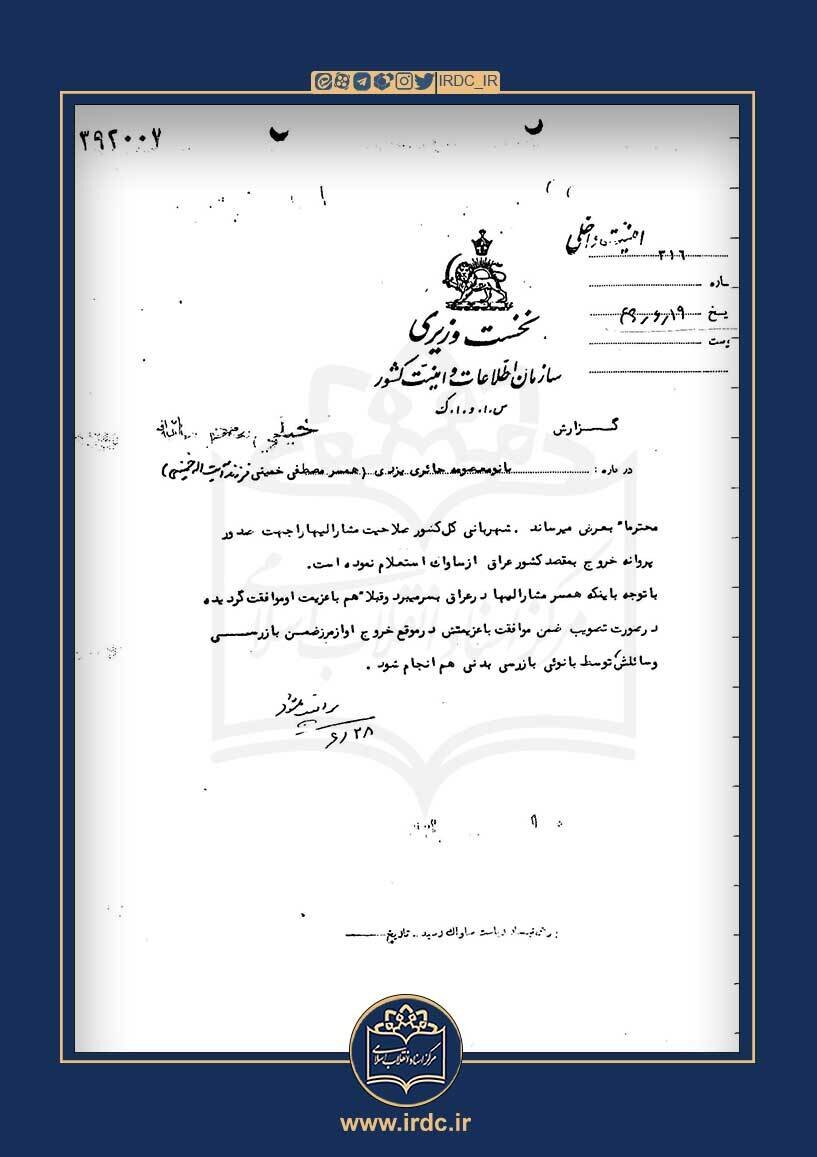 IRDC_IR
۳۹۲۰۰۷
امنیت داخلی
۳۱۶
ماره
یخ ۴۹/۶/۱۹
نخست وزیری
وست
سازمان اطلاعات و امنیت کشور
س.ا.و.ا.ک
گزارش
خیلی
درباره : بانو معصومه حائری یزدی (همسر مصطفی خمینی فرزند آیت اله خمینی)
محترماً بعرض میرساند . شهربانی کل کشور صلاحیت مشارالیها را جهت صدور
پروانه خروج بمقصد کشور عراق از ساواك استعلام نموده است.
باتوجه باینکه همسر مشارالیها در عراق بسر میبرد و قبلا هم باعزیمت او موافقت گردیده
در صورت تصویب ضمن موافقت باعزیمتش در موقع خروج او از مرز ضمن بازرسی
وسائلش توسط بانوئی بازرسی بدنی هم انجام شود .
۶/۲۸
ریاست ساواك رسید . تاریخ
مرکز اسناد انقلاب اسلامی
www.irdc.ir